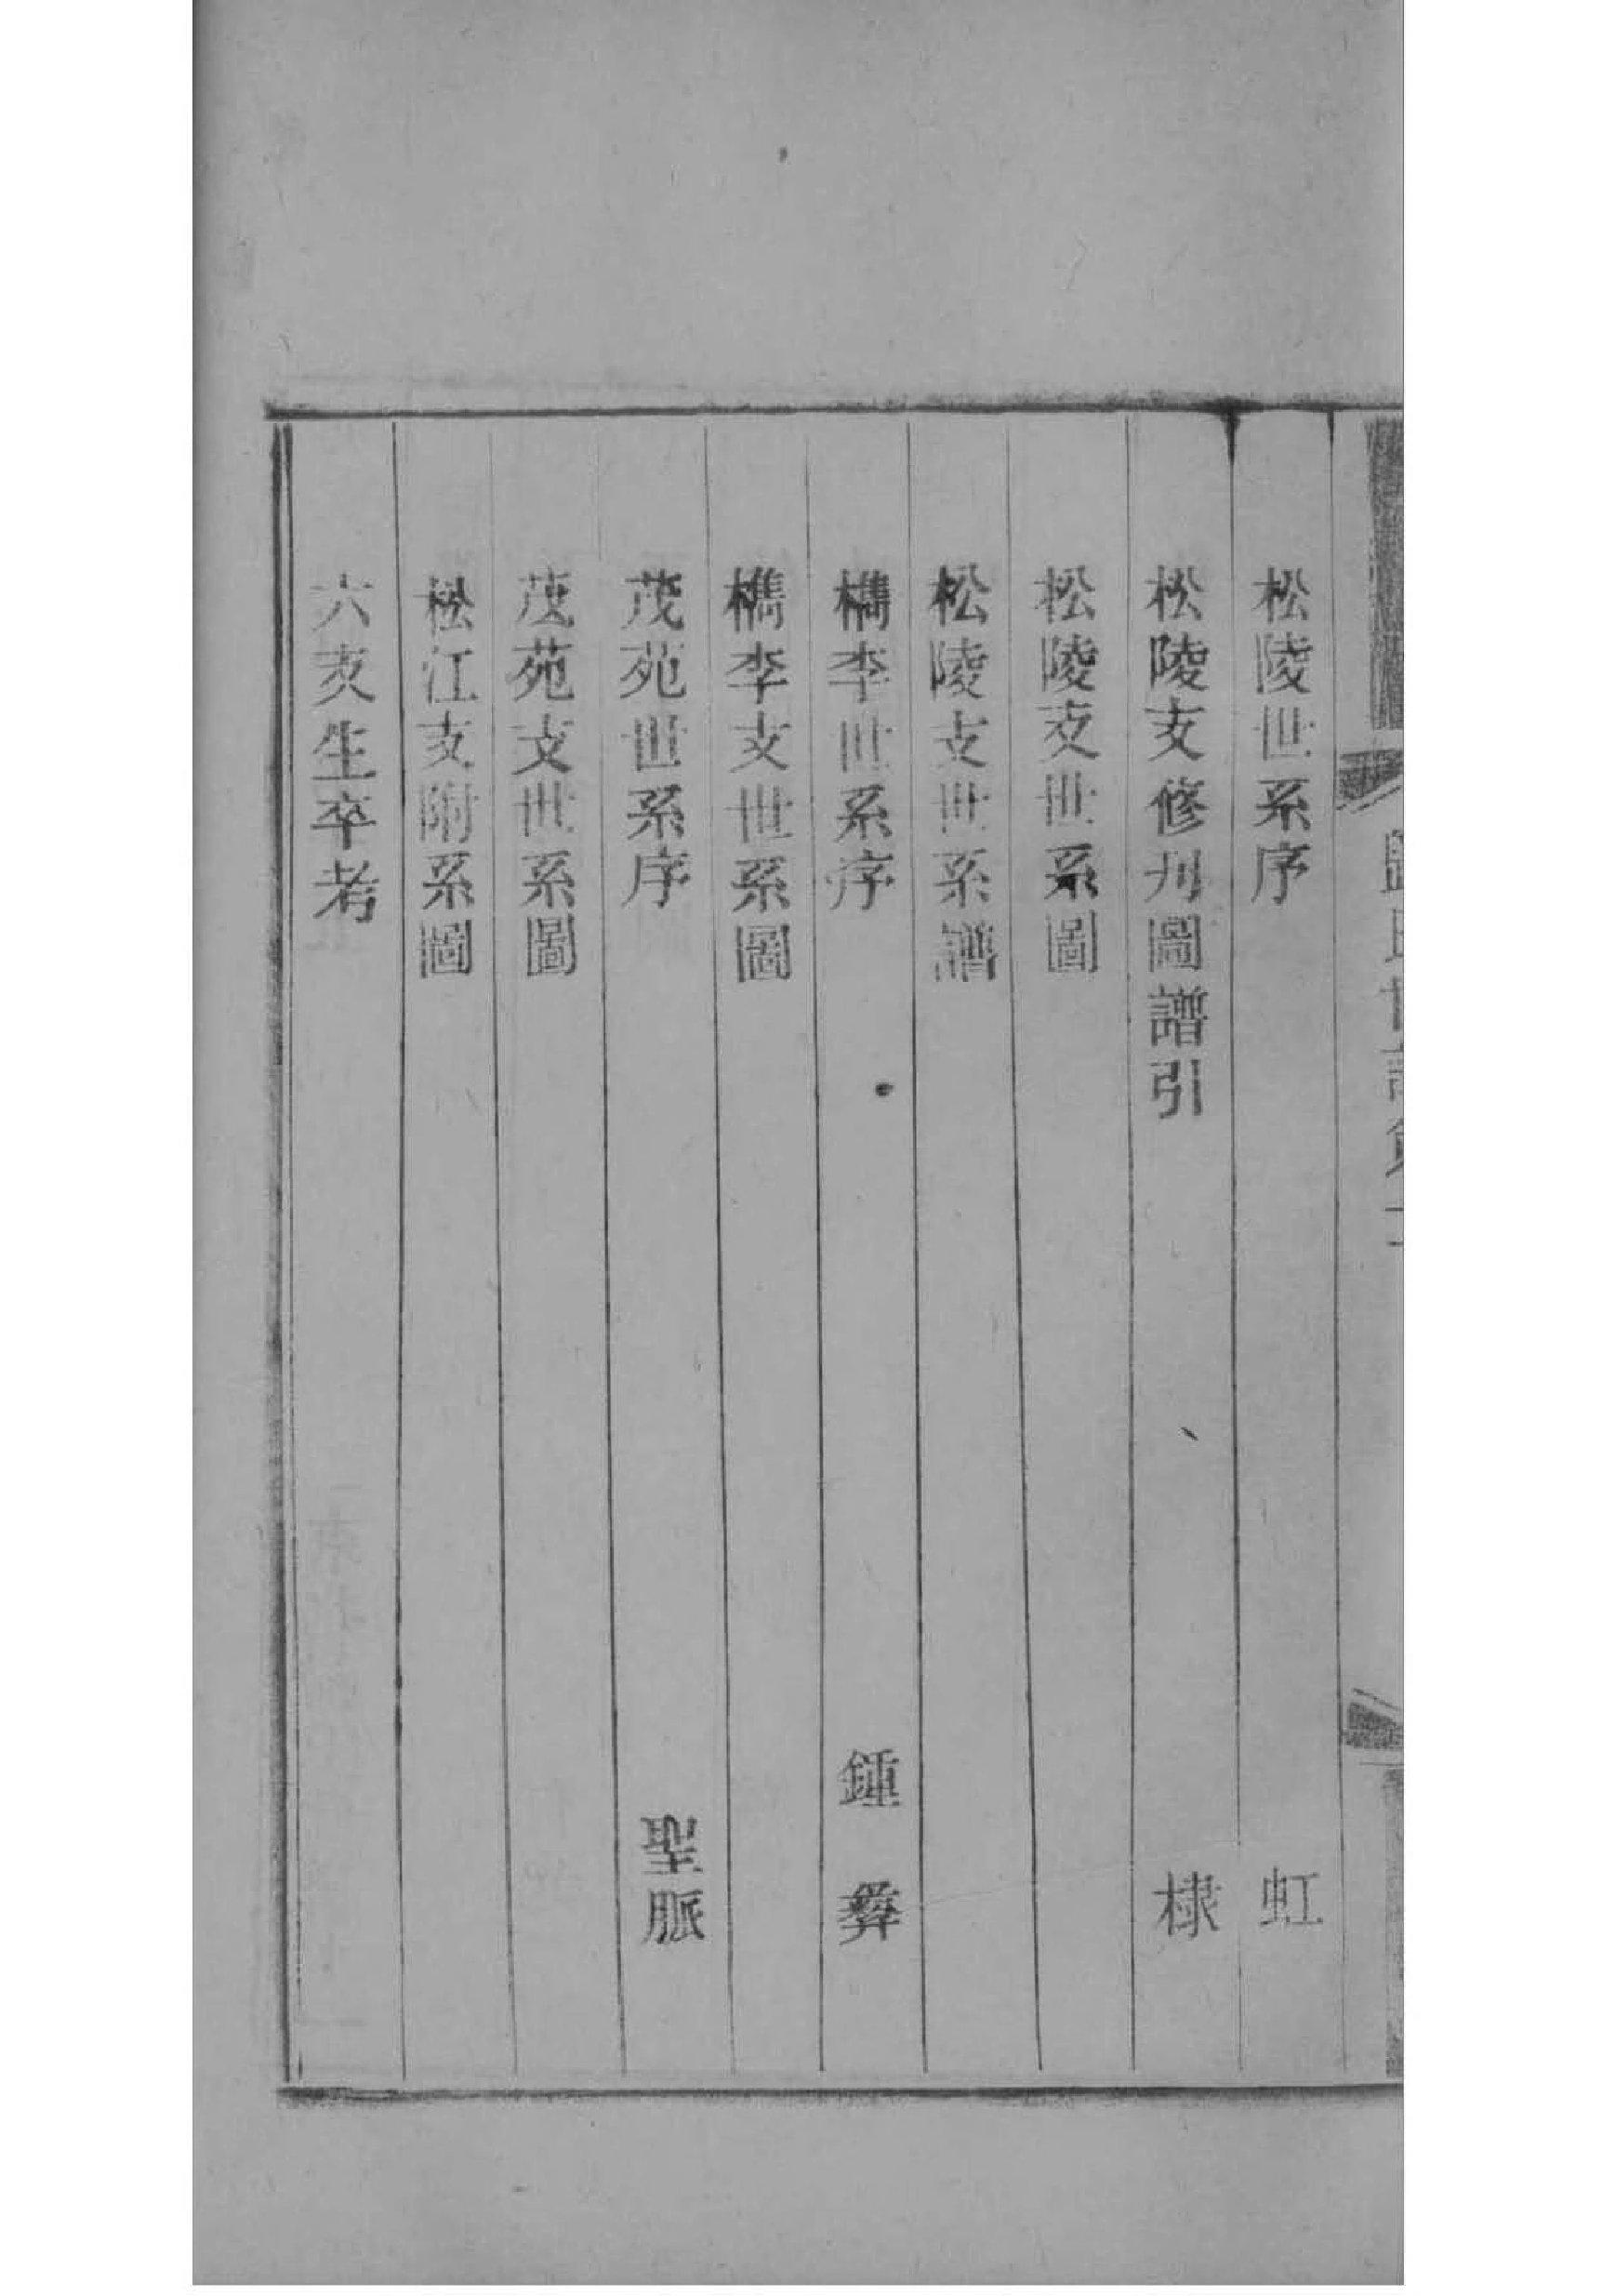 松陵世系序　虹
松陵支修刋圖譜引　棣
松陵支世系圖
松陵支世系譜
檇李世系序　鍾彝
檇李支世系圖
茂苑世系序　聖脈
茂苑支世系圖
松江支附系圖
六支生卒考